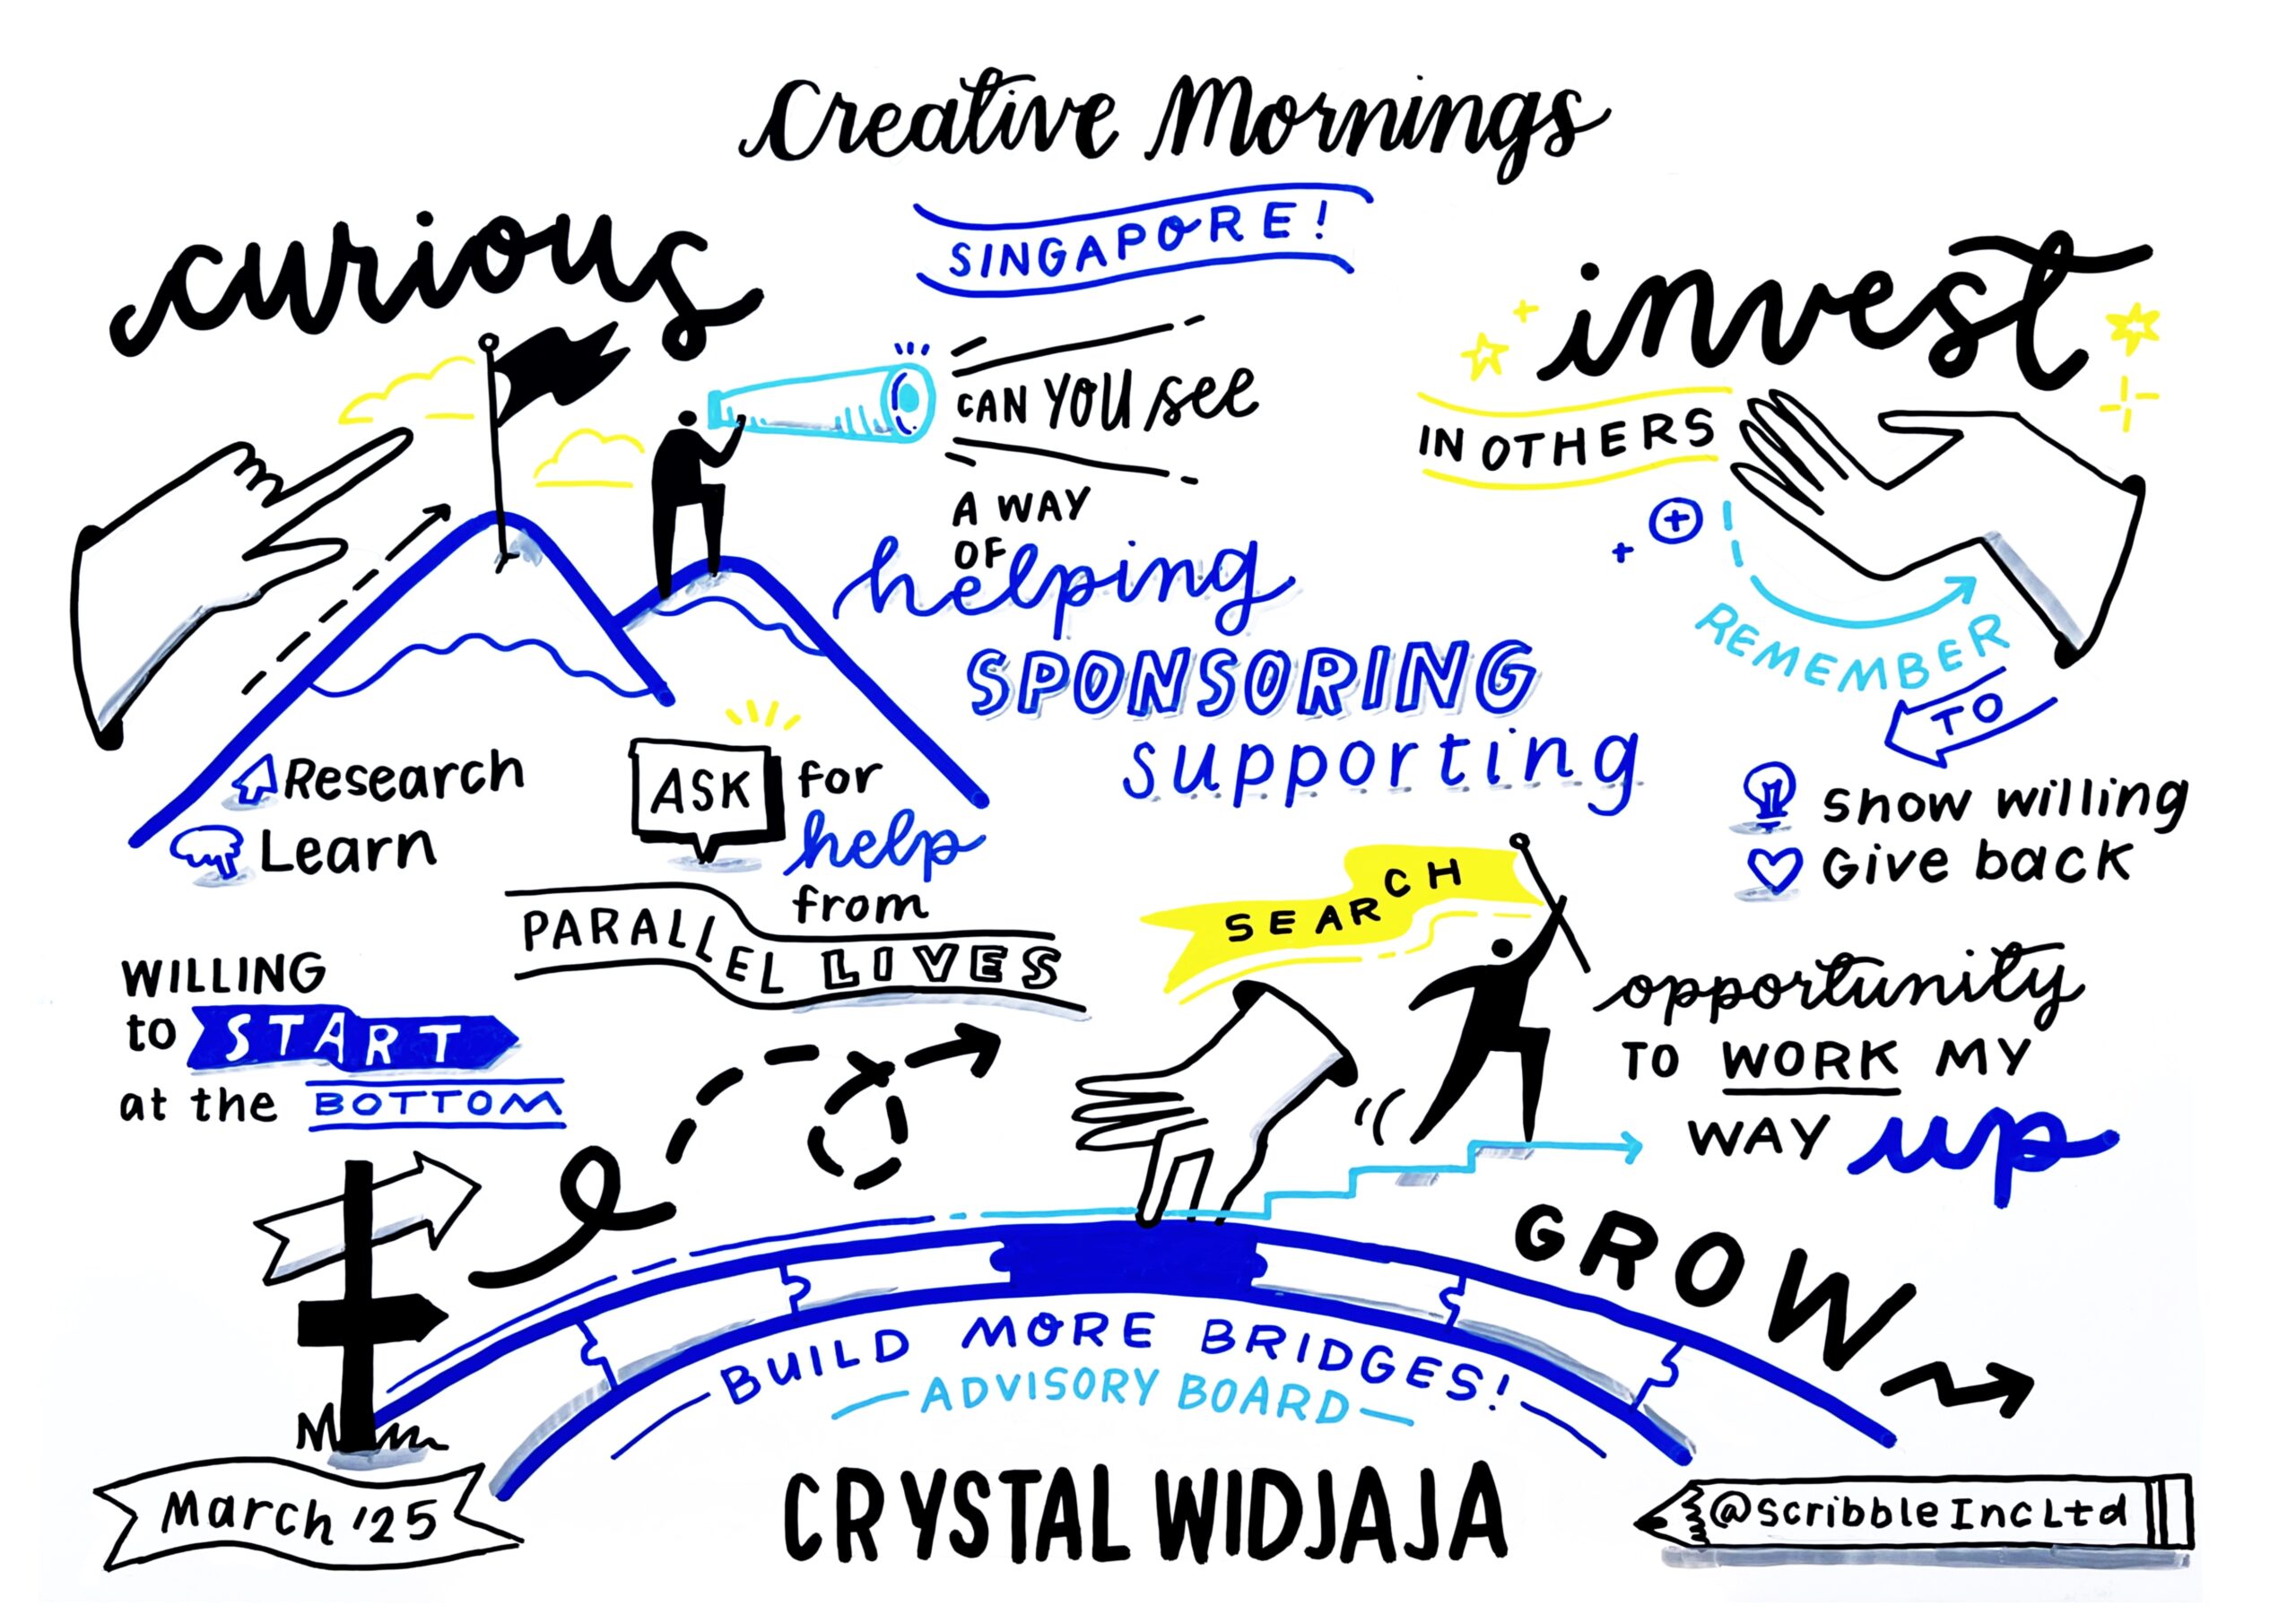 Creative Mornings
SINGAPORE!
curious
CAN YOU see
A WAY
OF
helping
SPONSORING
supporting
invest
IN OTHERS
REMEMBER
TO
show willing
Give back
Research
Learn
ASK for
help
from
PARALLEL LIVES
WILLING
to START
at the BOTTOM
SEARCH
opportunity
TO WORK MY
WAY up
GROW
BUILD MORE BRIDGES!
ADVISORY BOARD
March '25
CRYSTAL WIDJAJA
@ScribbleIncLtd